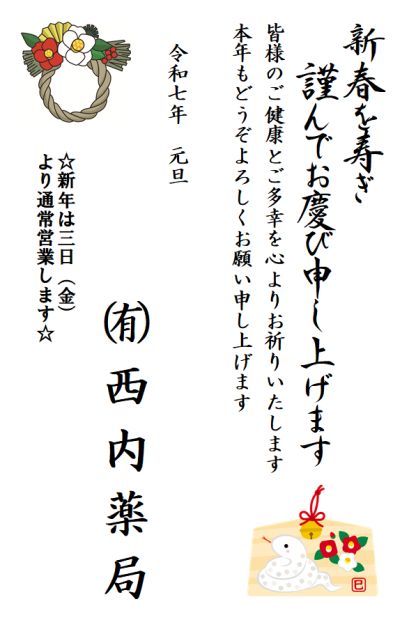 新春を寿ぎ
謹んでお慶び申し上げます
皆様のご健康とご多幸を心よりお祈りいたします
本年もどうぞよろしくお願い申し上げます
令和七年　元旦
☆新年は三日（金）
より通常営業します☆
㈲西内薬局
巳